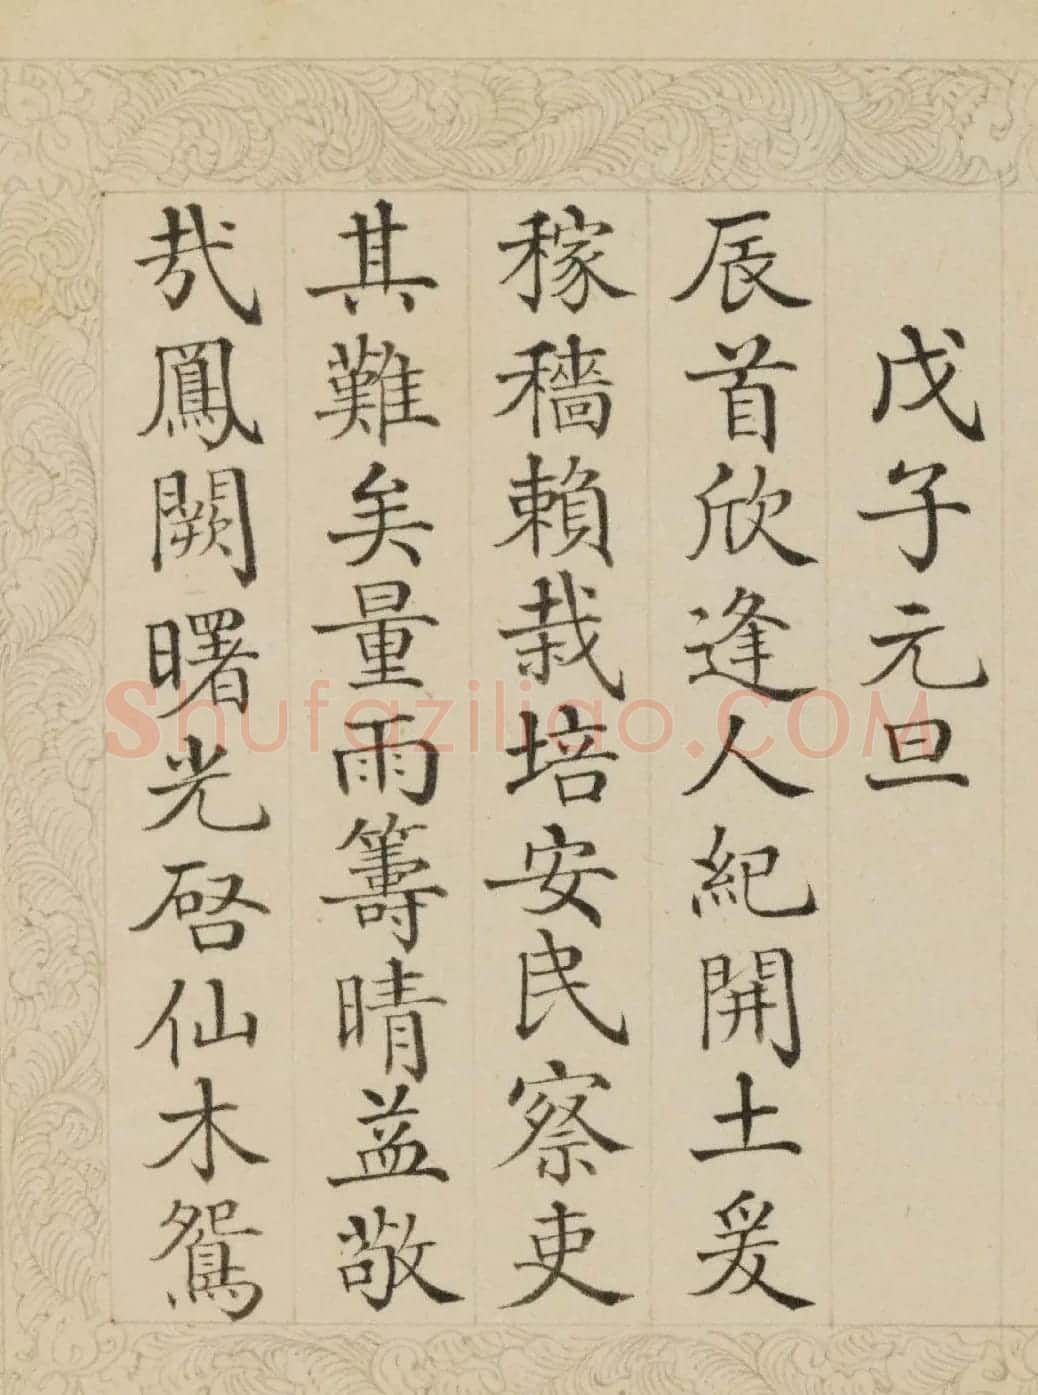 戊子元旦
辰首欣逢人紀開土爰
稼穡賴栽培安民察吏
其難矣量雨籌晴益敬
哉鳳闕曙光啓仙木鴛
Shufaziliao.COM